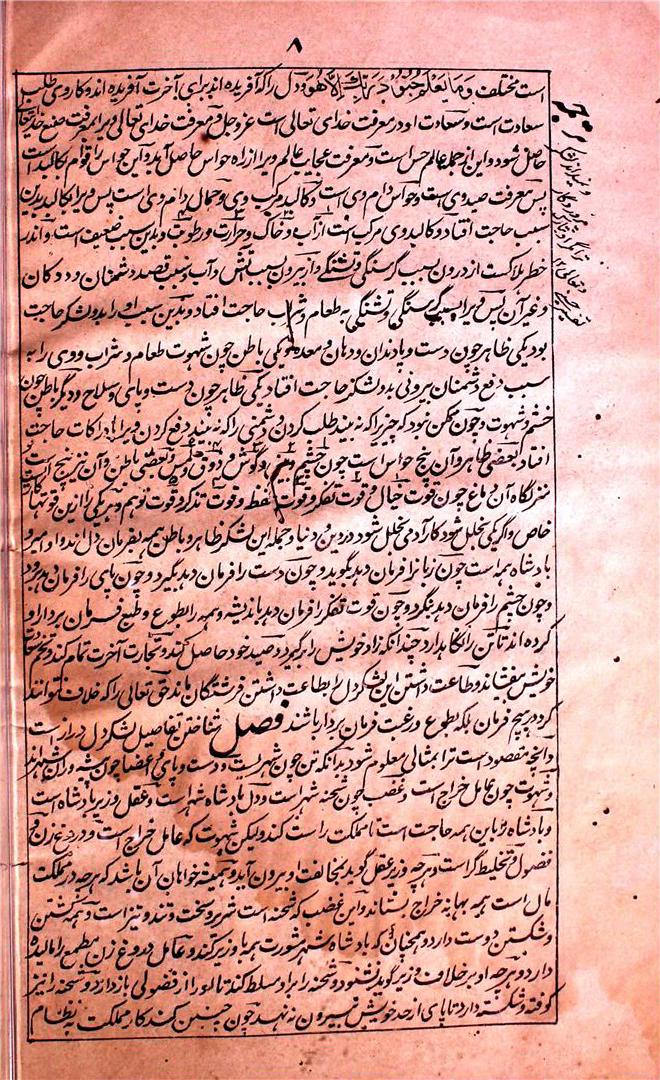 ۸
است مختلف وَمَا يَعْلَمُ جُنُودَ رَبِّكَ إِلَّا هُوَ و دل را که آفریده اند برای آخرت آفریده اند و کار وی طلب
سعادت است و سعادت او در معرفت خدای تعالی است عز و جل و معرفت خدای تعالی ویرا بمعرفت صنع خدایتعالی
حاصل شود و این از جمله عالم حس است و معرفت عجایب عالم ویرا از راه حواس حاصل آید و این حواس را قوام بکالبد است
پس معرفت صید وی است و حواس دام وی است و کالبد مرکب وی و حمال دام وی است پس ویرا بکالبد بدین
سبب حاجت افتاد و کالبد وی مرکب است از آب و خاک و حرارت و رطوبت و بدین سبب ضعیف است و اندر
خطر هلاکست از درون بسبب گرسنگی و تشنگی و از بیرون بسبب آتش و آب و بسبب قصد دشمنان و ددگان
و غیر آن پس ویرا بسبب گرسنگی و تشنگی به طعام و شراب حاجت افتاد و بدین سبب او را بدو لشکر حاجت
بود یکی ظاهر چون دست و پا و دندان و دهان و معده و یکی باطن چون شهوت طعام و شراب و وی را به
سبب دفع دشمنان بیرونی بدو لشکر حاجت افتاد یکی ظاهر چون دست و پای و سلاح و دیگر باطن چون
خشم و شهوت و چون ممکن نبود که چیزیرا که نه بیند طلب کردن و دشمنی را که نه بیند دفع کردن ویرا بادراکات حاجت
افتاد بعضی ظاهر و آن پنج حواس است چون چشم و بینی و گوش و ذوق و لمس و بعضی باطن و آن نیز پنج است
منزلگاه آن دماغ چون قوت خیال و قوت تفکر و قوت حفظ و قوت تذکر و قوت توهم و هر یکی را ازین قوتها کاریست
خاص و اگر یکی بخلل شود کار آدمی بخلل شود در دین و دنیا و جمله این لشکر ظاهر و باطن همه بفرمان دل اند و او امیر و
بادشاه همه است چون زبانرا فرمان دهد بگوید و چون دست را فرمان دهد بگیرد و چون پای را فرمان دهد برود
و چون چشم را فرمان دهد بنگرد و چون قوت تفکر را فرمان دهد باندیشد و همه را بطوع و طبع فرمان بردار او
کرده اند تا تن را نگاهدارد چندانکه زاد خویش را برگیرد و صید خود حاصل کند و تجارت آخرت تمام کند و تخم سعادت
خویش بیفشاند و طاعت داشتن این لشکر دل را بطاعت داشتن فرشتگان ماند حق تعالی را که خلاف نتوانند
کرد در هیچ فرمان بلکه بطوع و رغبت فرمان بردار باشند فصل شناختن تفاصیل لشکر دل درازست
و آنچه مقصود است ترا بمثالی معلوم شود بدانکه تن چون شهریست و دست و پای و اعضا چون پیشه وران شهرند
و شهوت چون عامل خراج است و غضب چون شحنه شهر است و دل بادشاه شهر است و عقل وزیر بادشاه است
و بادشاه را باین همه حاجت است تا مملکت راست کند ولیکن شهوت که عامل خراج است دروغ زن و
فضول و تخلیط گر است و هر چه وزیر عقل گوید بمخالفت او بیرون آید و همیشه خواهان آن باشد که هر چه در مملکت
مال است همه بهانه خراج بستاند و این غضب که شحنه است شریر و سخت و تند و تیز است و همه کشتن
و شکستن دوست دارد و همچنانکه بادشاه شهر مشورت همه با وزیر کند و عامل دروغ زن مطمع را مالیده
دارد و هر چه او بر خلاف وزیر گوید نشنود و شحنه را برو مسلط کند تا او را از فضولی باز دارد و شحنه را نیز
کوفته و شکسته دارد تا پای از حد خویش بیرون نه نهد چون چنین کند کار مملکت به نظام